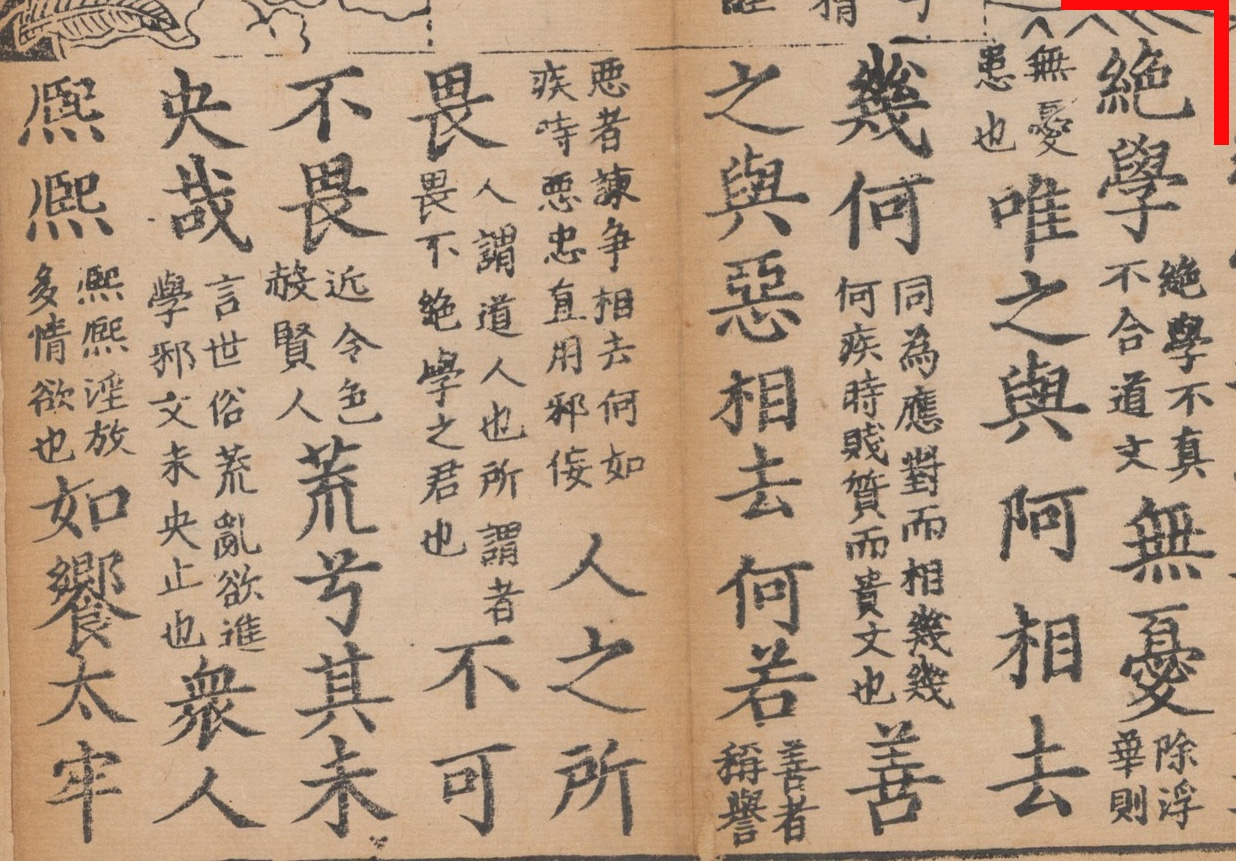 絶學絶學不真不合道文無憂除浮華則
無憂患也唯之與阿相去
幾何同為應對而相幾幾何疾時賤質而貴文也善
之與惡相去何若善者稱譽
悪者諫争相去何如疾時悪忠直用邪佞人之所
畏人謂道人也所謂者畏不絶學之君也不可
不畏近令色殺賢人荒兮其未
央哉言世俗荒亂欲進學邪文未央止也衆人
熈熈熈熈淫放多情欲也如饗太牢